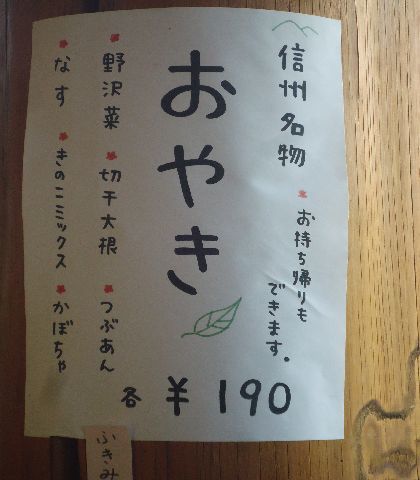 信州名物
お持ち帰りも
できます。
おやき
野沢菜 切干大根 つぶあん
なす きのこミックス かぼちゃ
各 ¥190
ふきみ